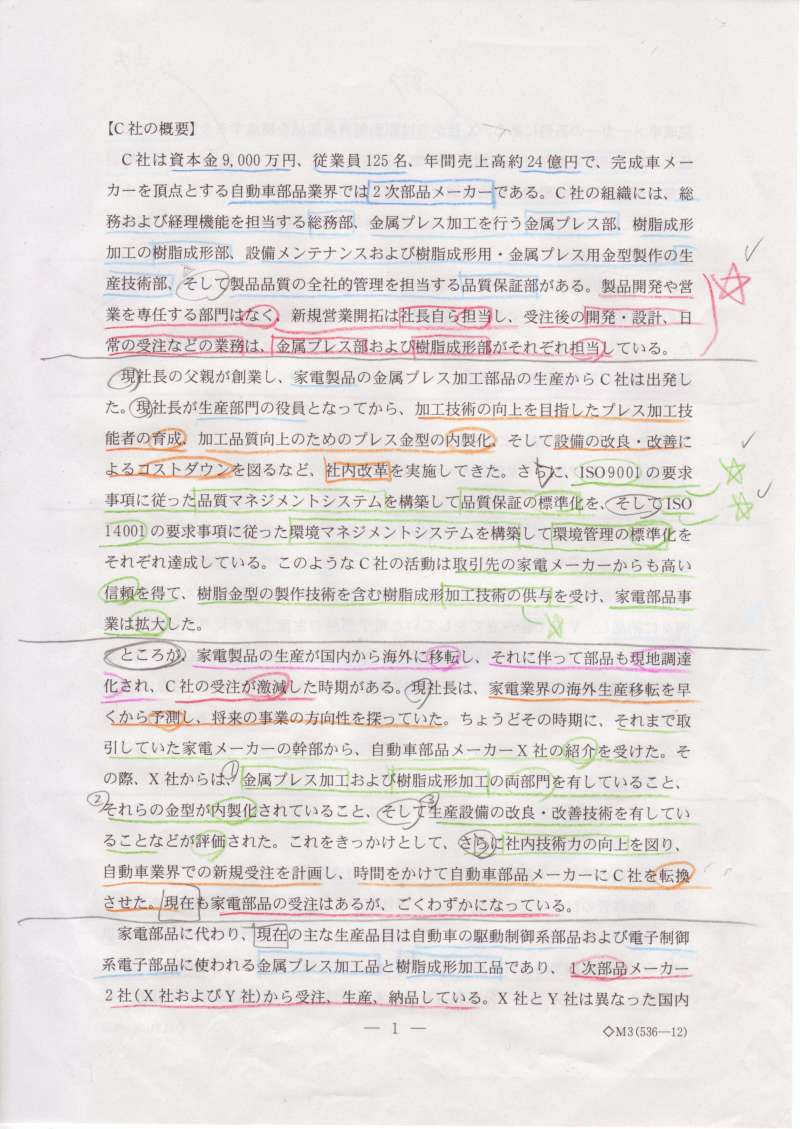 【C社の概要】
C社は資本金9,000万円、従業員125名、年間売上高約24億円で、完成車メー
カーを頂点とする自動車部品業界では2次部品メーカーである。C社の組織には、総
務および経理機能を担当する総務部、金属プレス加工を行う金属プレス部、樹脂成形
加工の樹脂成形部、設備メンテナンスおよび樹脂成形用・金属プレス用金型製作の生
産技術部、そして製品品質の全社的管理を担当する品質保証部がある。製品開発や営
業を専任する部門はなく、新規営業開拓は社長自ら担当し、受注後の開発・設計、日
常の受注などの業務は、金属プレス部および樹脂成形部がそれぞれ担当している。
現社長の父親が創業し、家電製品の金属プレス加工部品の生産からC社は出発し
た。現社長が生産部門の役員となってから、加工技術の向上を目指したプレス加工技
能者の育成、加工品質向上のためのプレス金型の内製化、そして設備の改良・改善に
よるコストダウンを図るなど、社内改革を実施してきた。さらに、ISO9001の要求
事項に従った品質マネジメントシステムを構築して品質保証の標準化を、そしてISO
14001の要求事項に従った環境マネジメントシステムを構築して環境管理の標準化を
それぞれ達成している。このようなC社の活動は取引先の家電メーカーからも高い
信頼を得て、樹脂金型の製作技術を含む樹脂成形加工技術の供与を受け、家電部品事
業は拡大した。
ところが、家電製品の生産が国内から海外に移転し、それに伴って部品も現地調達
化され、C社の受注が激減した時期がある。現社長は、家電業界の海外生産移転を早
くから予測し、将来の事業の方向性を探っていた。ちょうどその時期に、それまで取
引していた家電メーカーの幹部から、自動車部品メーカーX社の紹介を受けた。そ
の際、X社からは、①金属プレス加工および樹脂成形加工の両部門を有していること、
②それらの金型が内製化されていること、そして③生産設備の改良・改善技術を有してい
ることなどが評価された。これをきっかけとして、さらに社内技術力の向上を図り、
自動車業界での新規受注を計画し、時間をかけて自動車部品メーカーにC社を転換
させた。現在も家電部品の受注はあるが、ごくわずかになっている。
家電部品に代わり、現在の主な生産品目は自動車の駆動制御系部品および電子制御
系電子部品に使われる金属プレス加工品と樹脂成形加工品であり、1次部品メーカー
2社(X社およびY社)から受注、生産、納品している。X社とY社は異なった国内
— 1 —
◇M3(536—12)